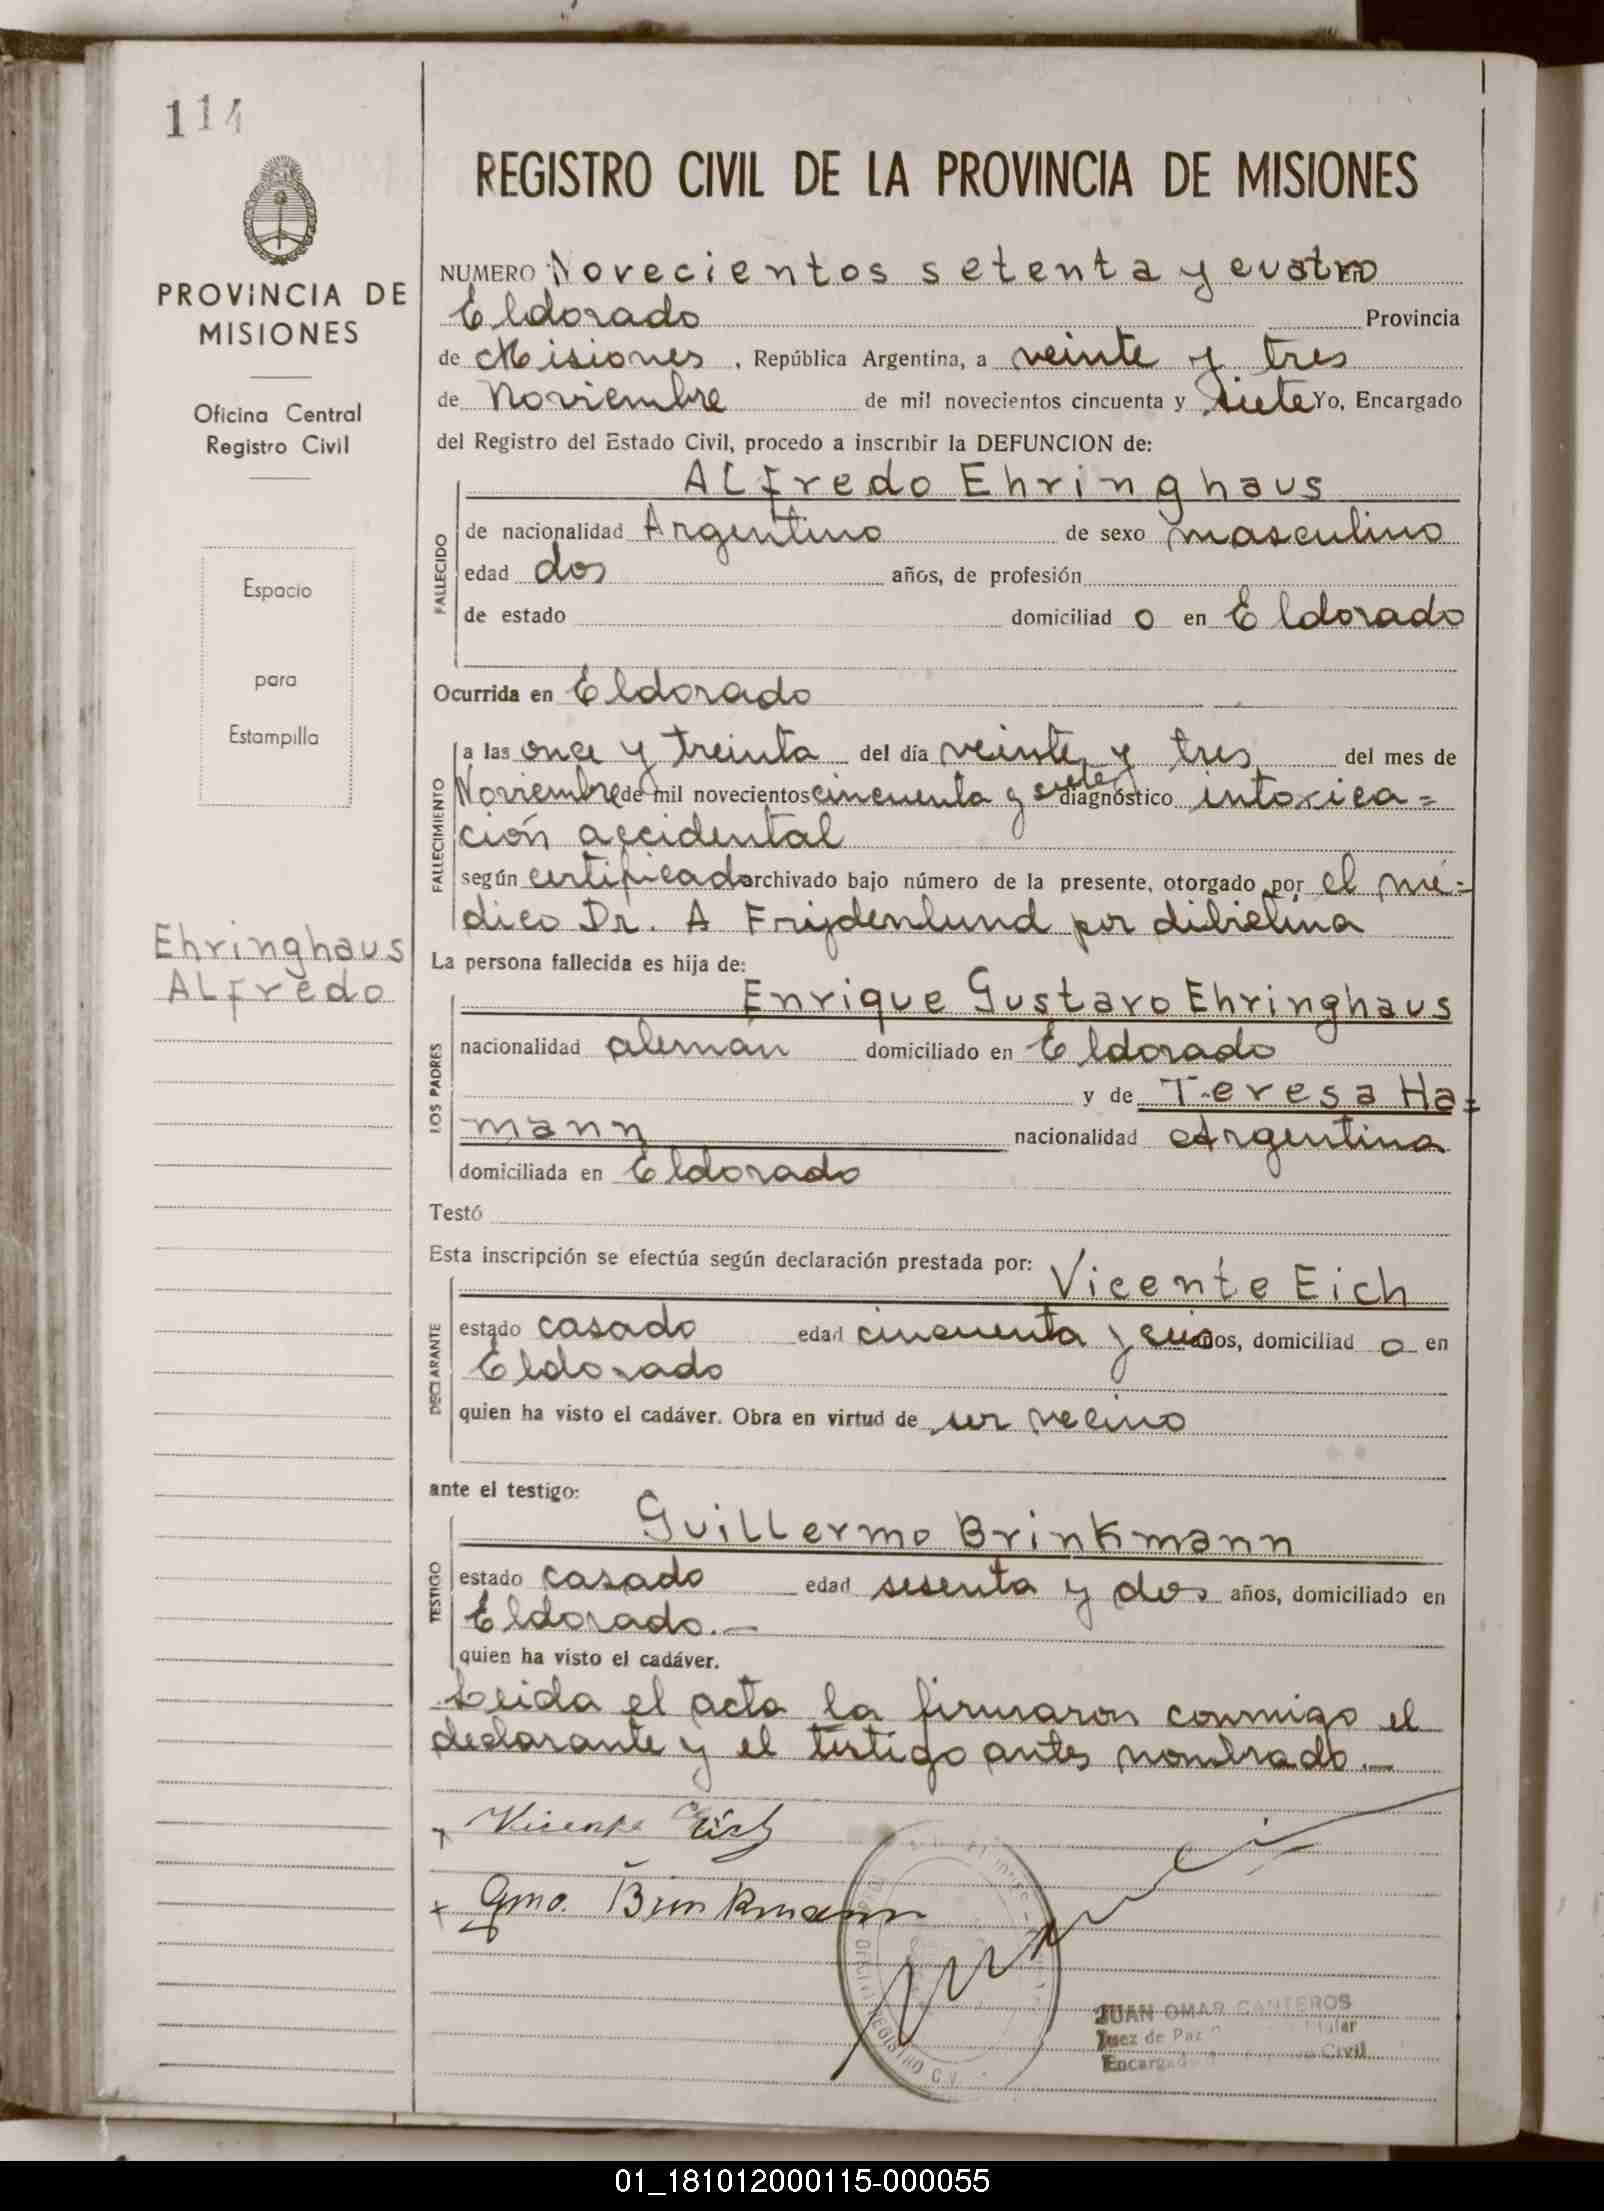 114
REGISTRO CIVIL DE LA PROVINCIA DE MISIONES
PROVINCIA DE
MISIONES
Oficina Central
Registro Civil
Espacio
para
Estampilla
Ehringhaus
ALfredo
NUMERO Novecientos setenta y cuatro
Eldorado Provincia
de Misiones, República Argentina, a veinte y tres
de Noviembre de mil novecientos cincuenta y siete Yo, Encargado
del Registro del Estado Civil, procedo a inscribir la DEFUNCION de:
ALfredo Ehringhaus
FALLECIDO
de nacionalidad Argentino de sexo masculino
edad dos años, de profesión
de estado domiciliad o en Eldorado
Ocurrida en Eldorado
FALLECIMIENTO
a las once y treinta del día veinte y tres del mes de
Noviembre de mil novecientos cincuenta y siete diagnóstico intoxica=
ción accidental
según certificado archivado bajo número de la presente, otorgado por el mé=
dico Dr. A Frijdenlund por dibielina
La persona fallecida es hija de:
LOS PADRES
Enrique Gustavo Ehringhaus
nacionalidad alemán domiciliado en Eldorado
y de Teresa Ha=
mann nacionalidad Argentina
domiciliada en Eldorado
Testó
Esta inscripción se efectúa según declaración prestada por:
Vicente Eich
DECLARANTE
estado casado edad cincuenta y seis años, domiciliad o en
Eldorado
quien ha visto el cadáver. Obra en virtud de ser vecino
ante el testigo:
Guillermo Brinkmann
TESTIGO
estado casado edad sesenta y dos años, domiciliado en
Eldorado.—
quien ha visto el cadáver.
Leida el acta la firmaron conmigo el
declarante y el testigo antes nombrado.—
Vicente Eich
Gmo. Brinkmann
JUAN OMAR CANTEROS
Juez de Paz
Encargado Civil
01_181012000115-000055